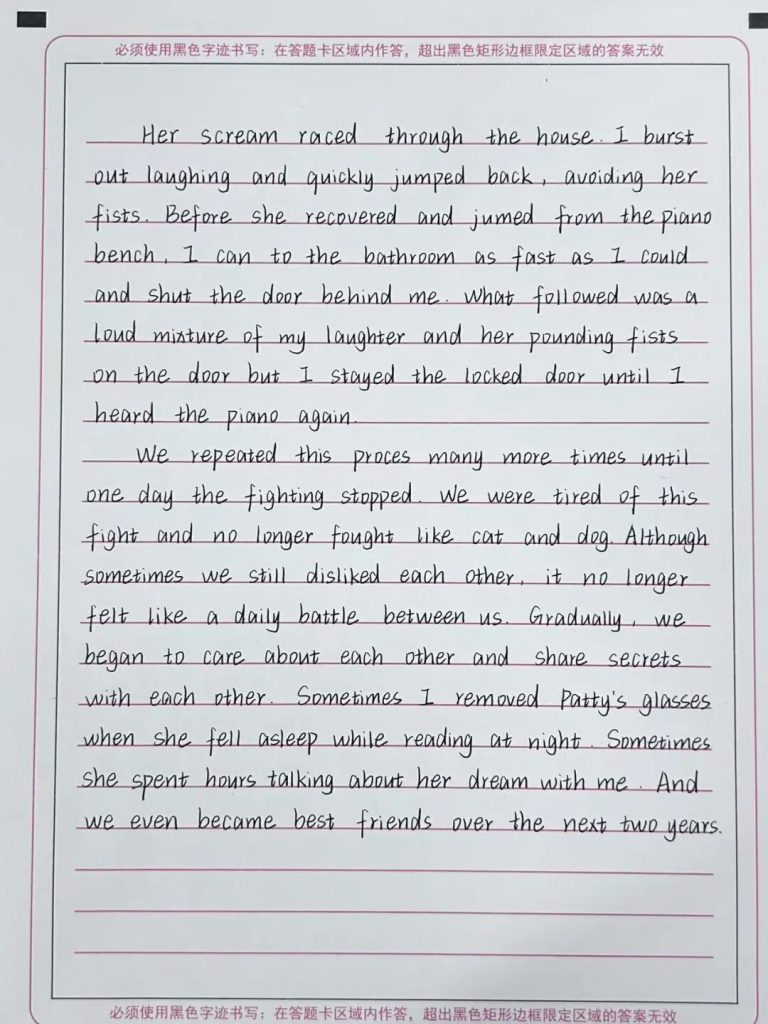 必须使用黑色字迹书写：在答题卡区域内作答，超出黑色矩形边框限定区域的答案无效
Her scream raced through the house. I burst
out laughing and quickly jumped back, avoiding her
fists. Before she recovered and jumed from the piano
bench, I can to the bathroom as fast as I could
and shut the door behind me. What followed was a
loud mixture of my laughter and her pounding fists
on the door but I stayed the locked door until I
heard the piano again.
We repeated this proces many more times until
one day the fighting stopped. We were tired of this
fight and no longer fought like cat and dog. Although
sometimes we still disliked each other, it no longer
felt like a daily battle between us. Gradually, we
began to care about each other and share secrets
with each other. Sometimes I removed Patty's glasses
when she fell asleep while reading at night. Sometimes
she spent hours talking about her dream with me. And
we even became best friends over the next two years.
必须使用黑色字迹书写：在答题卡区域内作答，超出黑色矩形边框限定区域的答案无效